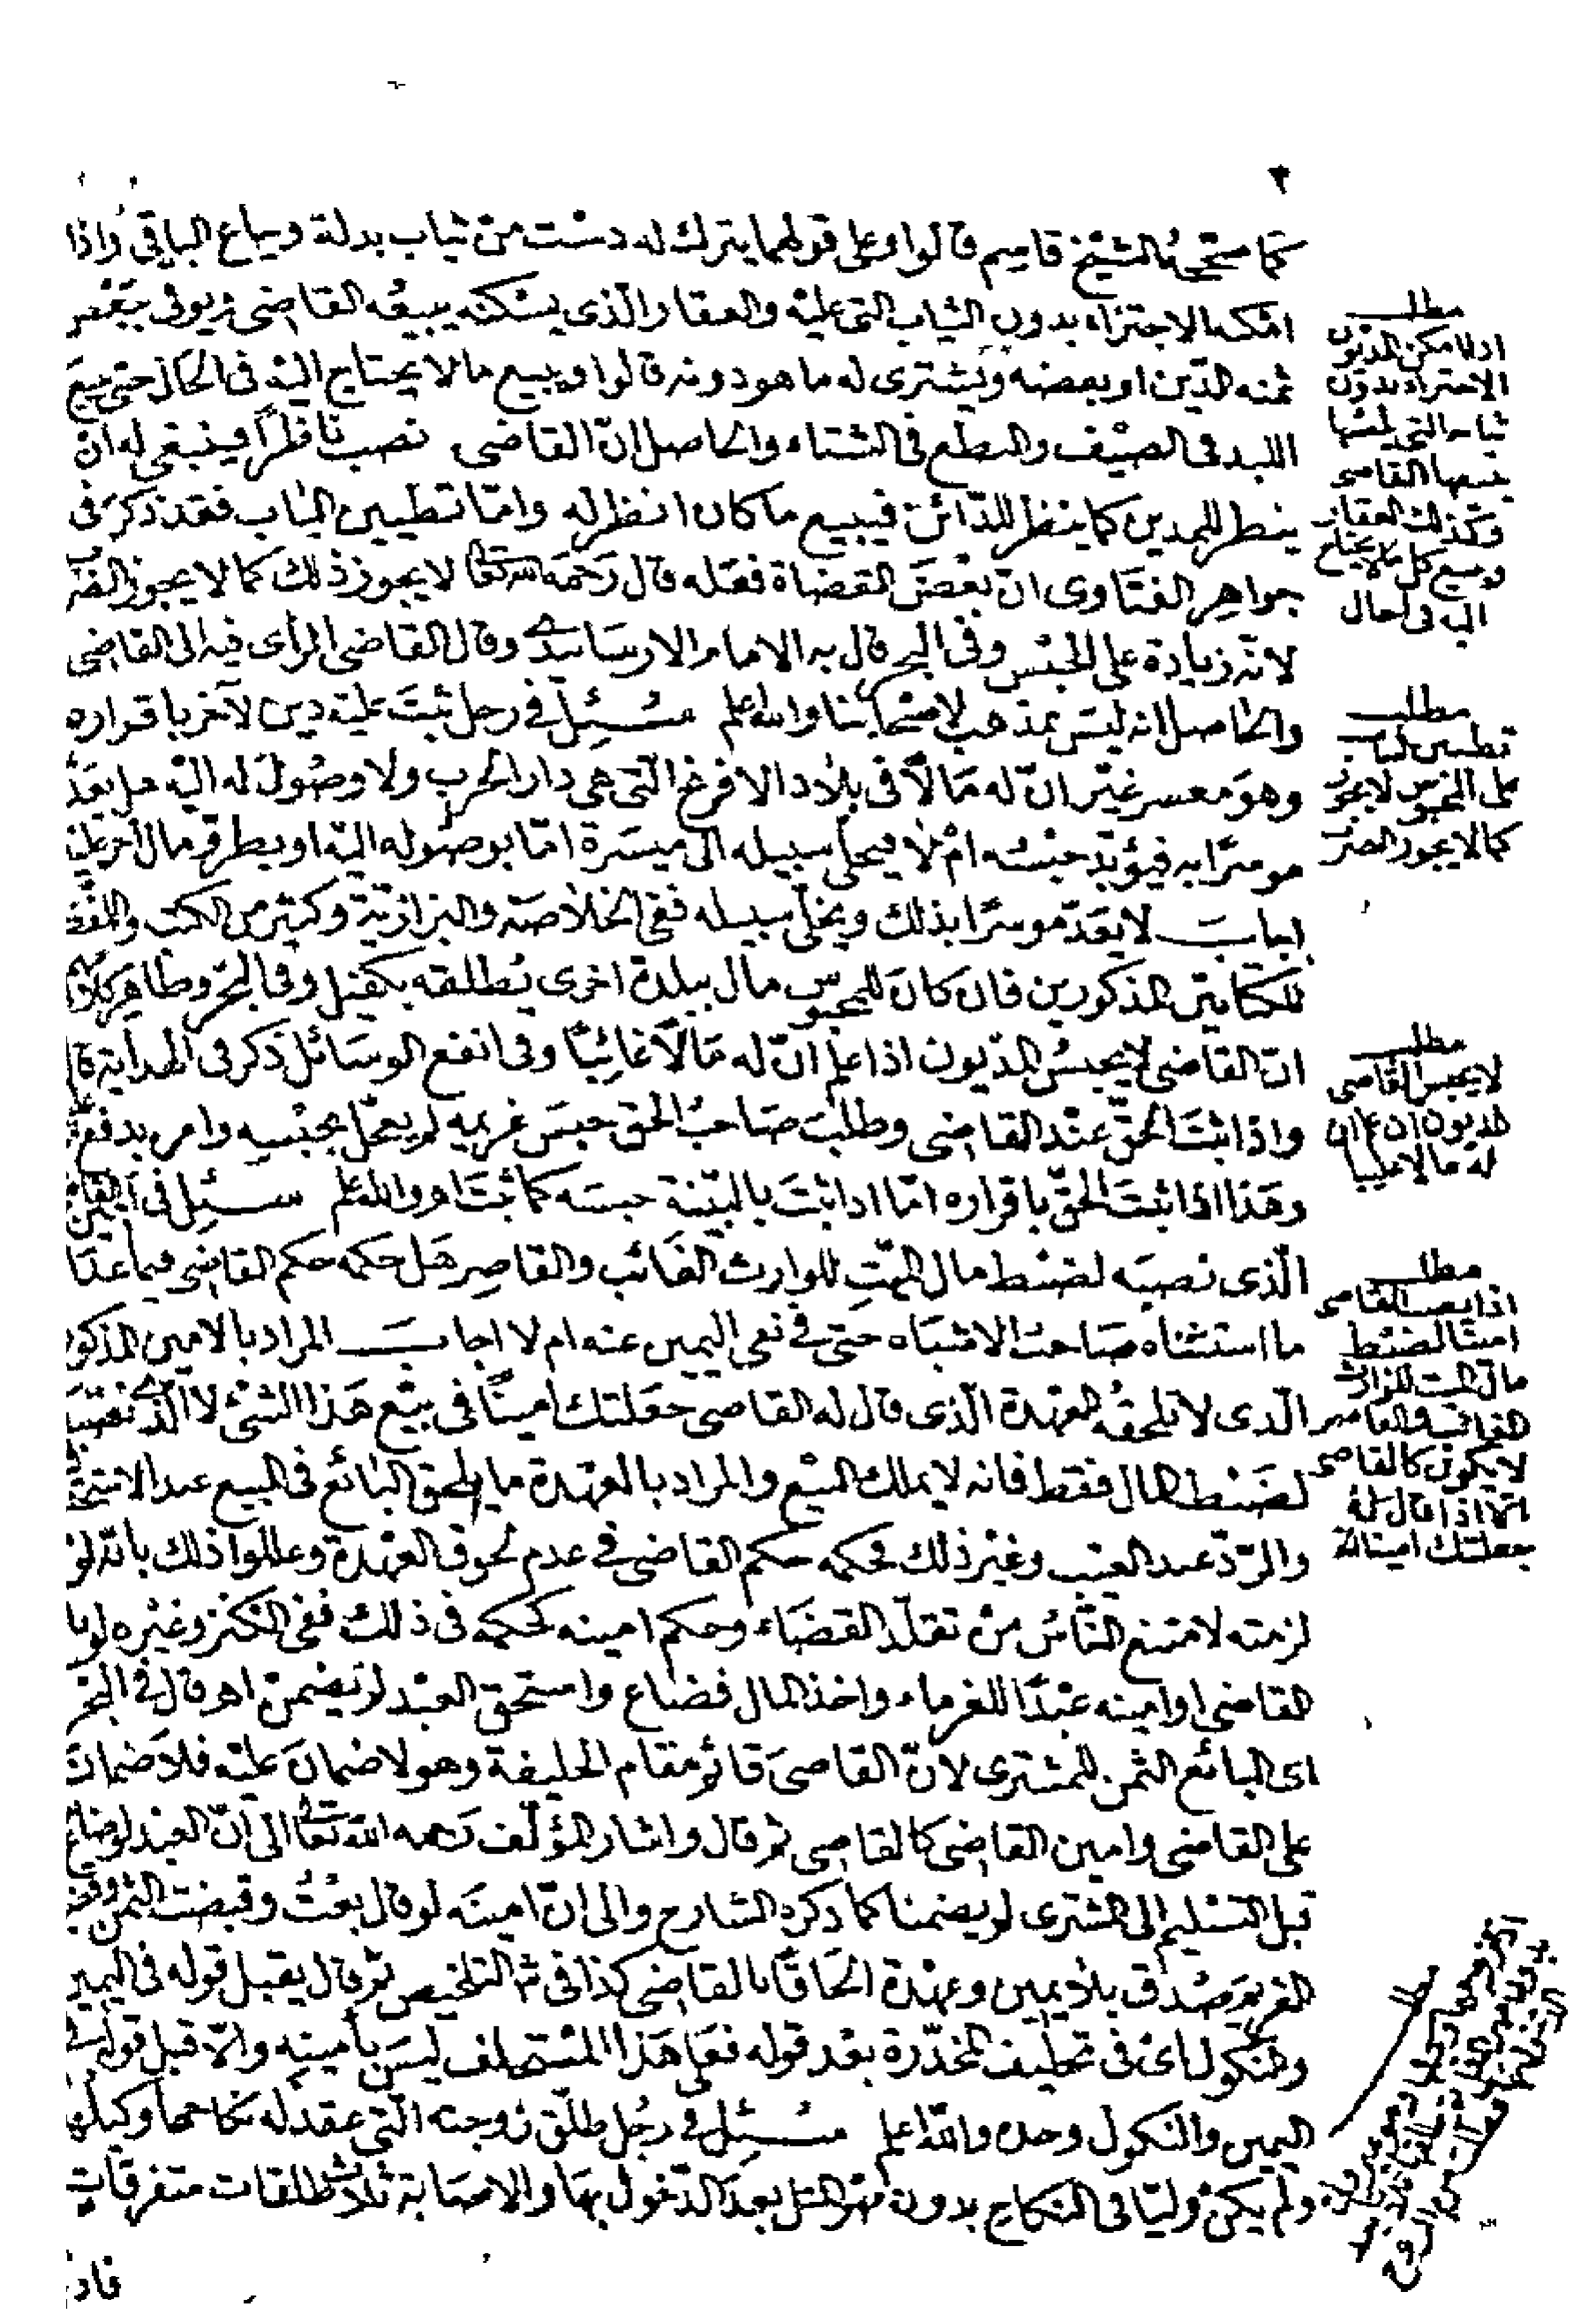 كما صححه الشيخ قاسم قالوا وعلى قولهما يترك له دست من ثياب بدلة ويباع الباقي واذا
امكنه الاجتزاء بدون الثياب التى عليه والعقار الذى يسكنه يبيعه القاضى ويوفى ببعض
ثمنه الدين او بعضه ويشترى له ما هو دونه قالوا ويبيع ما لا يحتاج اليه فى الحال حتى يبيع
اللبد فى الصيف والنطع فى الشتاء والحاصل ان القاضى نصب ناظرا فينبغى له ان
ينظر للمدين كما ينظر للدائن فيبيع ما كان انظر له واما تطيين الباب فقد ذكر فى
جواهر الفتاوى ان بعض القضاة فعله قال رحمه الله تعالى لا يجوز ذلك كما لا يجوز الضرب
لانه زيادة على الحبس وفى البحر قال به الامام الارسابندى وقال القاضى الرأى فيه الى القاضى
والحاصل انه ليس بمذهب لاصحابنا والله اعلم سئل فى رجل ثبت عليه دين لآخر باقراره
وهو معسر غير ان له مالا فى بلاد الافرنج التى هى دار الحرب ولا وصول له اليه هل يعد
موسرا به فيؤبد حبسه ام لا فيخلى سبيله الى ميسرة اما بوصوله اليه او بطرق مال آخر عليه
اجاب لا يعد موسرا بذلك ويخلى سبيله ففى الخلاصة والبزازية وكثير من الكتب واللفظ
للكتابين المذكورين فان كان للمحبوس مال ببلدة اخرى يطلقه بكفيل وفى البحر وظاهر كلامهم
ان القاضى لا يحبس المديون اذا علم ان له مالا غائبا وفى انفع الوسائل ذكر فى الهداية قال
واذا ثبت الحق عند القاضى وطلب صاحب الحق حبس غريمه لم يعجل بحبسه وامره بدفع
وهذا اذا ثبت الحق باقراره اما اذا ثبت بالبينة حبسه كما ثبت اه والله اعلم سئل فى امين القاضى
الذى نصبه لضبط مال الميت للوارث الغائب والقاصر هل حكمه حكم القاضى فيما عدا
ما استثناه صاحب الاشباه حتى فى نفى اليمين عنه ام لا اجاب المراد بالامين المذكور
الذى لا تلحقه العهدة الذى قال له القاضى جعلتك امينا فى بيع هذا الشئ لا الذى نصبه
لضبط المال فقط فانه لا يملك البيع والمراد بالعهدة ما يلحق البائع فى البيع عند الاستحقاق
والرد عند العيب وغير ذلك فحكمه حكم القاضى فى عدم لحوق العهدة وعللوا ذلك بانه لو
لزمته لامتنع الناس من تقلد القضاء وحكم امينه كحكمه فى ذلك ففى الكنز وغيره لو باع
القاضى او امينه عبدا للغرماء واخذ المال فضاع واستحق العبد لم يضمن اه قال فى البحر
اى البائع الثمن للمشترى لان القاضى قائم مقام الخليفة وهو لا ضمان عليه فلا ضمان
على القاضى وامين القاضى كالقاضى ثم قال واشار المؤلف رحمه الله تعالى الى ان العبد لو ضاع
قبل التسليم الى المشترى لم يضمنا كما ذكره الشارح والى ان امينه لو قال بعت وقبضت الثمن وقضيت
الغريم صدق بلا يمين وعهدة الحاقا بالقاضى كذا فى شرح التلخيص ثم قال يقبل قوله فى اليمين
والنكول اى فى تحليف المخدرة بعد قوله فعلى هذا المستحلف ليس بأمينه والا قبل قوله فى
اليمين والنكول وحده والله اعلم سئل فى رجل طلق زوجته التى عقد له نكاحها وكيلها
ولم يكن وليا فى النكاح بدون مهر المثل بعد الدخول بها والاصابة ثلاث طلقات متفرقات
فاد
مطلب
اذا امكن المديون
الاجتزاء بدون
ثيابه التى لبسها
يبيعها القاضى
وكذلك العقار
ويبيع كل ما لا يحتاج
اليه فى الحال
مطلب
تطيين الباب
على المحبوس لا يجوز
كما لا يجوز الضرب
مطلب
لا يحبس القاضى
المديون اذا علم ان
له مالا غائبا
مطلب
اذا نصب القاضى
امينا لضبط
مال الميت للوارث
الغائب والقاصر
لا يكون كالقاضى
الا اذا قال له
جعلتك امينا الخ